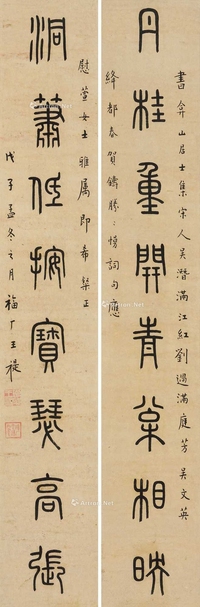 書弁山居士集宋人吳潛滿江紅劉過滿庭芳吳文英
丹桂重開青眾相映
絳都春賀鑄勝勝慢詞句應
慰萱女士雅屬即希槼正
洞簫低按寶瑟高張
戊子孟冬之月福厂王禔